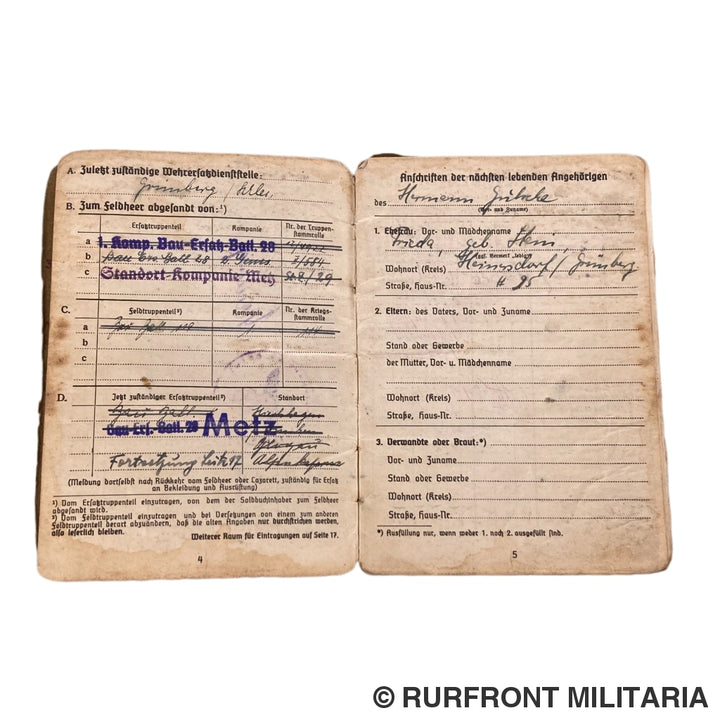 A. Zuletzt zuständige Wehrersatzdienststelle:
Grünberg / Schles.
B. Zum Feldheer abgesandt von:¹)
Ersatztruppenteil Kompanie Nr. der Truppenstammrolle
a 1. Komp. Bau-Ersatz-Batl. 28
b Bau Ers Batl 28 2. Genes 3/584
c Standort-Kompanie Metz 29
C. Feldtruppenteil²) Kompanie Nr. der Kriegsstammrolle
a
b
c
D. Jetzt zuständiger Ersatztruppenteil²) Standort
Bau Batl.
Bau-Ers.-Batl. 28 Metz
Glogau
Fortsetzung Seite 17
(Meldung dortselbst nach Rückkehr vom Feldheer oder Lazarett, zuständig für Ersatz
an Bekleidung und Ausrüstung)
¹) Vom Ersatztruppenteil einzutragen, von dem der Soldbuchinhaber zum Feldheer
abgesandt wird.
²) Vom Feldtruppenteil einzutragen und bei Versetzungen von einem zum anderen
Feldtruppenteil derart abzuändern, daß die alten Angaben nur durchstrichen werden,
also leserlich bleiben.
Weiterer Raum für Eintragungen auf Seite 17.
4
Anschriften der nächsten lebenden Angehörigen
des Hermann
(Vor- und Zuname)
1. Ehefrau: Vor- und Mädchenname
Frieda, geb. Stein,
(ggf. Vermerk „ledig“)
Wohnort (Kreis) Heinersdorf / Grünberg
Straße, Haus-Nr. # 95
2. Eltern: des Vaters, Vor- und Zuname
Stand oder Gewerbe
der Mutter, Vor- u. Mädchenname
Wohnort (Kreis)
Straße, Haus-Nr.
3. Verwandte oder Braut:*)
Vor- und Zuname
Stand oder Gewerbe
Wohnort (Kreis)
Straße, Haus-Nr.
*) Ausfüllung nur, wenn weder 1. noch 2. ausgefüllt sind.
5
© RURFRONT MILITARIA